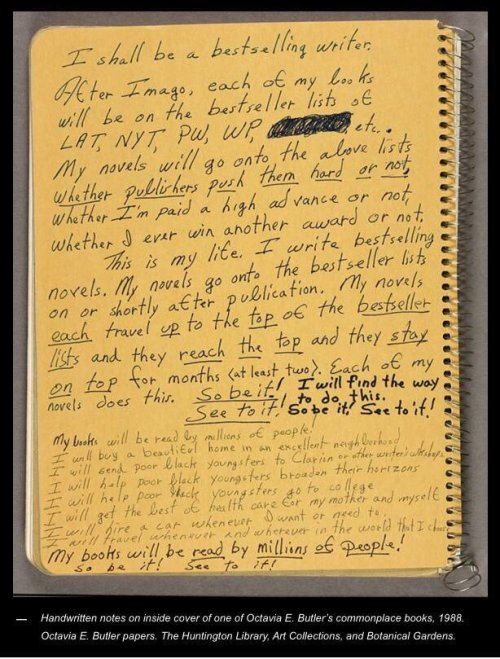 I shall be a bestselling writer.
After Imago, each of my books
will be on the bestseller lists of
LAT, NYT, PW, WP, etc..
My novels will go onto the above lists
whether publishers push them hard or not,
whether I'm paid a high advance or not,
whether I ever win another award or not.
This is my life. I write bestselling
novels. My novels go onto the bestseller lists
on or shortly after publication. My novels
each travel up to the top of the bestseller
lists and they reach the top and they stay
on top for months (at least two). Each of my
novels does this. So be it! I will find the way
See to it! to do this.
So be it! See to it!
My books will be read by millions of people!
I will buy a beautiful home in an excellent neighborhood
I will send poor black youngsters to Clarion or other writer's workshops
I will help poor black youngsters broaden their horizons
I will help poor black youngsters go to college
I will get the best of health care for my mother and myself
I will hire a car whenever I want or need to.
I will travel whenever and wherever in the world that I choose
My books will be read by millions of people!
So be it! See to it!
— Handwritten notes on inside cover of one of Octavia E. Butler's commonplace books, 1988.
Octavia E. Butler papers. The Huntington Library, Art Collections, and Botanical Gardens.